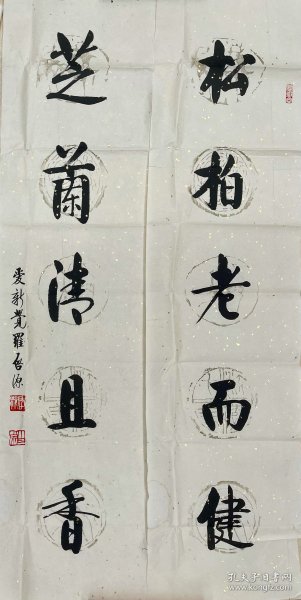 松柏老而健
芝蘭清且香
爱新覺羅启源
孔夫子旧书网